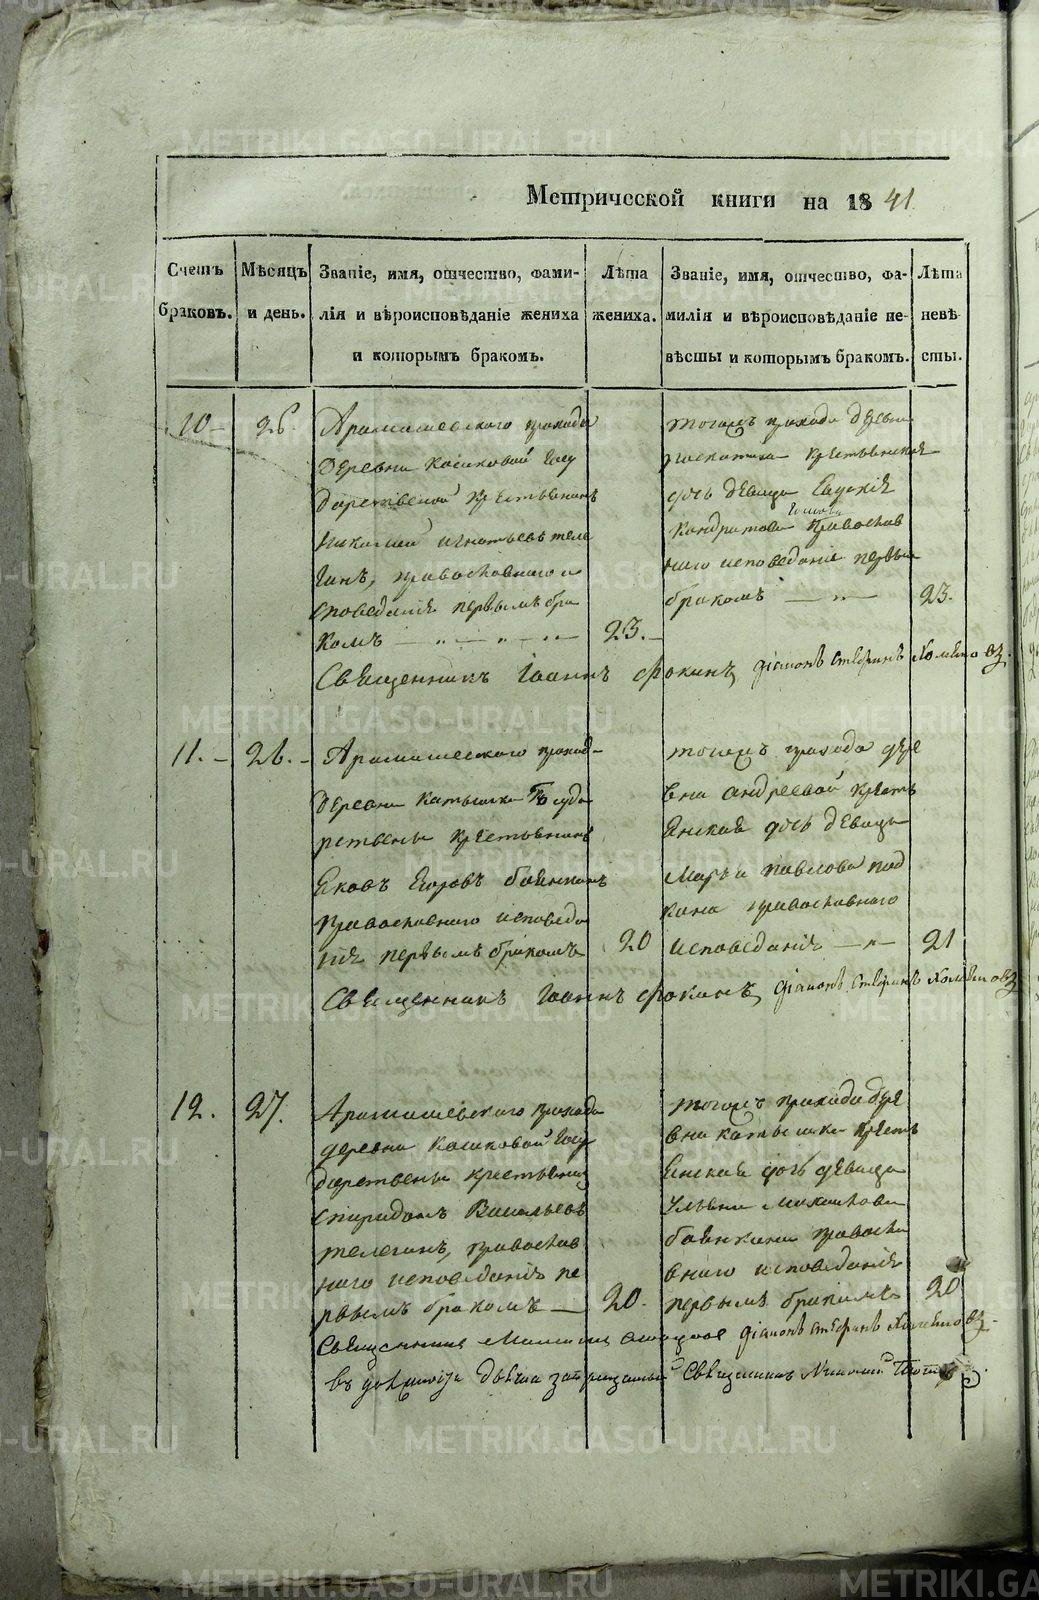 Метрической книги на 1841
Счетъ браковъ.
Мѣсяцъ и день.
Званіе, имя, отчество, фамилія и вѣроисповѣданіе жениха и которымъ бракомъ.
Лѣта жениха.
Званіе, имя, отчество, фамилія и вѣроисповѣданіе невѣсты и которымъ бракомъ.
Лѣта невѣсты.
10 –
26.
Арамашевскаго прихода
деревни Косиковой Госу
дарственой крестьянинъ
Николай Игнатьевъ теле
гинъ, православнаго и
споведанія первымъ бра
комъ
23. –
тогожъ прихода деревни
крестьянская
дочь девица Евдокія
Кандратова православ
наго исповеданіе первы
бракомъ
23.
Священникъ Іоаннъ Фокинъ, діаконъ Стефанъ
11. –
26. –
Арамашевского приход
деревни Катышки Госуда
рствены крестьянинъ
Яковъ Егоровъ боянкинъ
православнаго исповеда
нія первымъ бракомъ
20
тогожъ прихода дере
вни андреевой крестъ
янская дочь девица
Марья павлова под
кина православнаго
исповеданія
21
Священникъ Іоаннъ Фокинъ, діаконъ Стефанъ
12.
27.
Арамашевскаго прихода
деревни Косиковой Госу
дарствены крестьянинъ
спиридонъ Васильевъ
телегинъ, православ
наго исповеданія пе
рвымъ бракомъ
20.
тогожъ прихода дере
вни катышки крестъ
янская дочь девица
Ульяна Михайлова
боянкина правосла
внаго исповеданія
первымъ бракомъ
20
діаконъ Стефанъ
Священникъ
METRIKI.GASO-URAL.RU